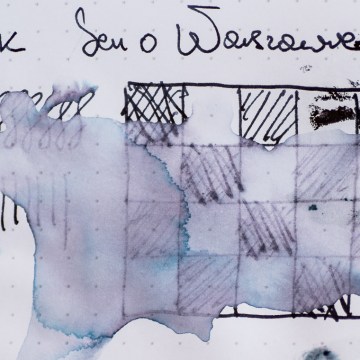 K Sen o Warszawie